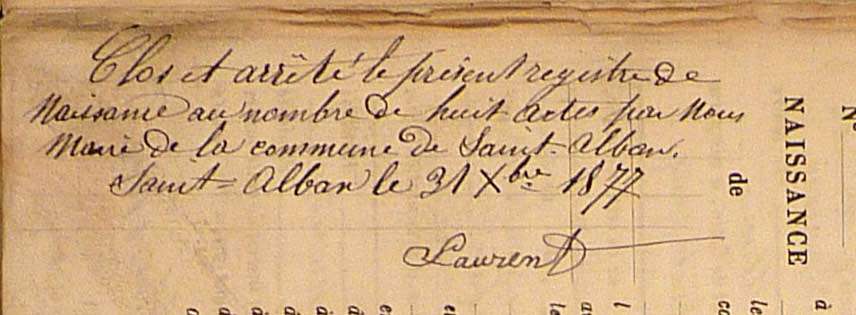 Clos et arrêté le présent registre de
Naissance au nombre de huit actes par Nous
Maire de la commune de Saint-Alban.
Saint-Alban le 31 Xbre 1877
Laurent
N°
NAISSANCE
de